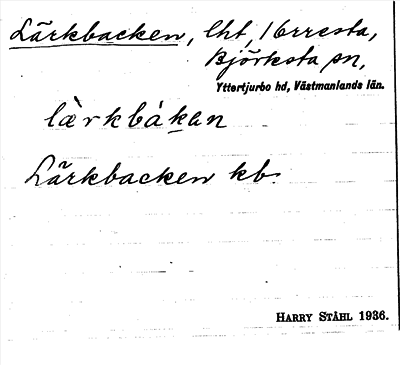 Lärkbacken, lht, Norresta,
Björksta sn,
Yttertjurbo hd, Västmanlands län.
lærkbàkan
Lärkbacken kb.
HARRY STÅHL 1936.